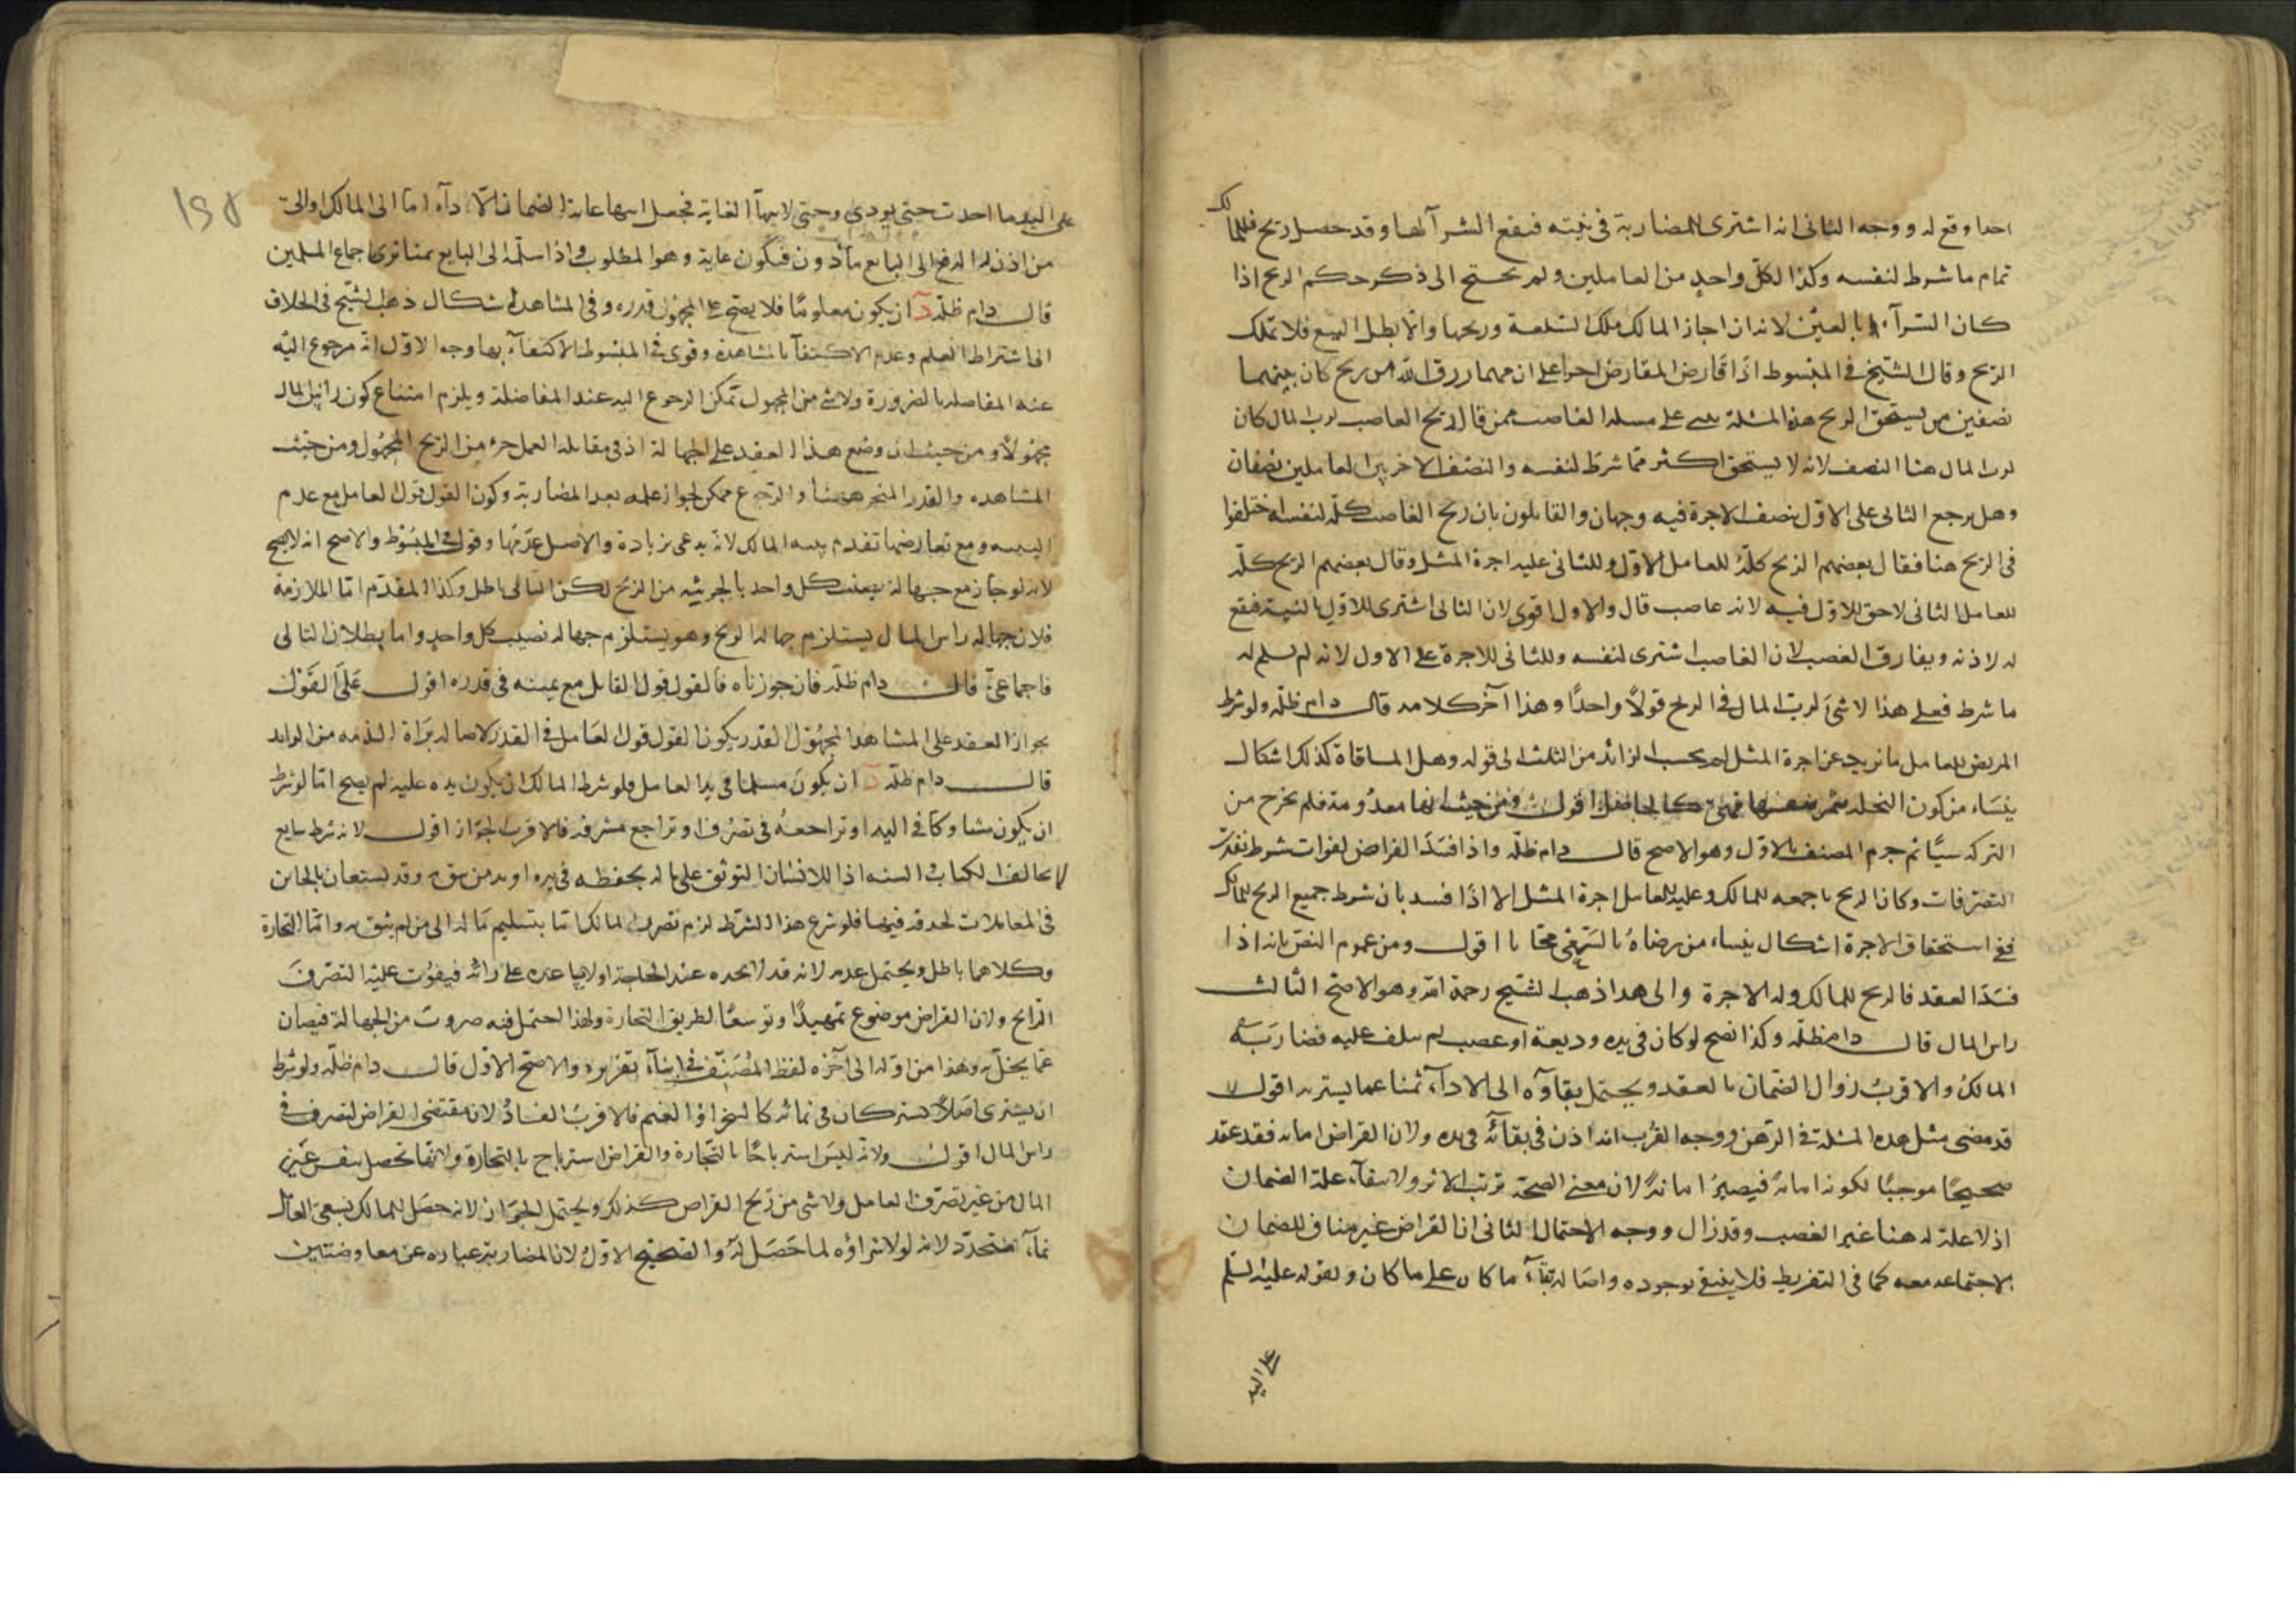 احدا وقع له ووجه الثاني انه اشترى للمضاربة في نيته فيقع الشرآ لها وقد حصل ربح فللمالك
تمام ما شرط لنفسه وكذا لكل واحد من العاملين ولم يحتج الى ذكر حكم الربح اذا
كان الشرآء بالعين لانه ان اجاز المالك ملك السلعة وربحها والا بطل البيع فلا تملك
الربح وقال الشيخ في المبسوط اذا قارض المقارض احدا على ان مهما رزق الله من ربح كان بينهما
نصفين من يستحق الربح هذه المسئلة على مسله الغاصب فمن قال ربح الغاصب لرب المال كان
لرب المال هنا النصف لانه لا يستحق اكثر مما شرط لنفسه والنصف الاخر بين العاملين نصفان
وهل يرجع الثاني على الاول بنصف الاجرة فيه وجهان والقايلون بان ربح الغاصب كله لنفسه اختلفوا
في الربح هنا فقال بعضهم الربح كله للعامل الاول وللثاني عليه اجرة المثل وقال بعضهم الربح كله
للعامل الثاني لاحق للاول فيه لانه غاصب قال والاول اقوى لان الثاني اشترى للاول بالنية فيقع
له لاذنه ويفارق الغصب لان الغاصب اشترى لنفسه وللثاني للاجرة على الاول لانه لم يسلم له
ما شرط فعلى هذا لا شيء لرب المال في الربح قولا واحدا وهذا آخر كلامه قال دام ظله ولو شرط
المريض للعامل ما يزيد عن اجرة المثل لم يحسب الزائد من الثلث الى قوله وهل المساقاة كذلك اشكال
ينساء من كون النخله تثمر بنفسها فهي كالحاصل اقول ومن حيث انها معدومة فلم يخرج من
التركه شيئا ثم جزم المصنف بالاول وهو الاصح قال دام ظله واذا فسد القراض لفوات شرط نفذت
التصرفات وكان الربح باجمعه للمالك وعليه للعامل اجرة المثل الا اذا فسد بان شرط جميع الربح للمالك
ففي استحقاق الاجرة اشكال ينساء من رضاه بالسعي مجانا اقول ومن عموم النص بانه اذا
فسد العقد فالربح للمالك وله الاجرة والى هذا ذهب الشيخ رحمه الله وهو الاصح الثالث
راس المال قال دام ظله وكذا تصح لو كان في يده وديعة او غصب لم يتلف عليه فضاربه
المالك والاقرب زوال الضمان بالعقد ويحتمل بقاوه الى الادآء ثمنا عما يشتريه اقول
قد مضى مثل هذه المسئلة في الرهن ووجه القرب انه اذن في بقائه في يده ولان القراض امانه فقد عقد
صحيحا موجبا لكونه امانة فيصير امانة لان معنى الصحة ترتب الاثر ولانتفآء علة الضمان
اذ لا علة له هنا غير الغصب وقد زال ووجه الاحتمال الثاني ان القراض غير مناف للضمان
لاجتماعه معه كما في التفريط فلا ينتفي بوجوده واصالة بقآء ما كان على ما كان ولقوله عليه السلم
على اليد
١٥٨
على اليد ما اخذت حتى يودي وحتى لانتهآ الغاية فجعل انتهاء غاية الضمان الادآء اما الى المالك او الى
من اذن له الدفع الى البايع مأذون فيكون غاية وهو المطلوب واذا سلمه الى البايع اجماع المسلمين
قال دام ظله د ان يكون معلوما فلا يصح على المجهول قدره وفي المشاهد اشكال ذهب الشيخ في الخلاف
الى اشتراط العلم وعدم الاكتفآ بالمشاهدة وقوى في المبسوط الاكتفآء بها وجه الاول انه مرجوع اليه
عند المفاصله بالضرورة ولا شيء من المجهول تمكن الرجوع اليه عند المفاصلة ويلزم امتناع كون راس المال
مجهولا ومن حيث ان وضع هذا العقد على الجهالة اذ في مقابله العمل جزء من الربح المجهول ومن حيث
المشاهده والقدر المنجر ههنا والرجوع ممكن لجواز علمه بعد المضاربة وكون القول قول العامل مع عدم
البينه ومع تعارضهما تقدم بينه المالك لانه يدعي زيادة والاصل عدمها وقوله في المبسوط والاصح انه لا يصح
لانه لو جاز مع جهالة نصيب كل واحد بالجزئيه من الربح لكن التالي باطل وكذا المقدم اما الملازمة
فلان جهاله راس المال يستلزم جهاله الربح وهو يستلزم جهاله نصيب كل واحد واما بطلان التالي
فاجماعي قال دام ظله فان جوزناه فالقول قول العامل مع يمينه في قدره اقول على القول
بجواز العقد على المشاهد المجهول القدر يكون القول قول العامل في القدر لاصاله براة الذمه من الزايد
قال دام ظله د ان يكون مسلما في يد العامل فلو شرط المالك ان يكون يده عليه لم يصح اما لو شرط
ان يكون مشاركا في اليد او تراجعه في تصرف او تراجع مشرفه فالاقرب الجواز اقول لانه شرط سايع
لا يخالف الكتاب والسنه اذ للانسان التوثق على ماله بحفظه في يده او يد من يثق به وقد يستعان بالخاين
في المعاملات لحدقه فيها فلو شرع هذا الشرط لزم تضرر المالك اما بتسليم ماله الى من لم يثق به واما التجارة
وكلاهما باطل ويحتمل عدمه لانه قد لا يجده عند الحاجة او لا يساعده على رائه فيفوت عليه التصرف
الرابح ولان القراض موضوع تمهيدا وتوسعا لطريق التجارة ولهذا احتمل فيه ضروب من الجهالة فيصان
عما يخل به وهذا من اوله الى آخره لفظ المصنف في اثنآء تقريره والاصح الاول قال دام ظله ولو شرط
ان يشترى اصلا يشتركان في نمائه كالشجر او الغنم فالاقرب الفساد لان مقتضى القراض التصرف في
راس المال اقول ولانه ليس استرباحا بالتجارة والقراض استرباح بالتجارة وانما تحصل بنفس عين
المال من غير تصرف العامل ولا شي من ربح القراض كذلك ويحتمل الجواز لانه حصل للمالك بسعي العامل
نمآء متجدد لانه لولا شراؤه لما حصل له والصحيح الاول لان المضاربة عباره عن معاوضتين